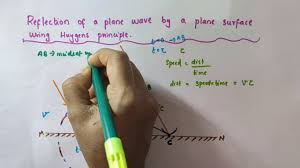 Reflection of a plane wave by a plane surface
using Huygens principle.
AB → incident
t=0 → AB
t=τ C
Speed = dist
time
dist = speed×time = vτ
v
M
C
N